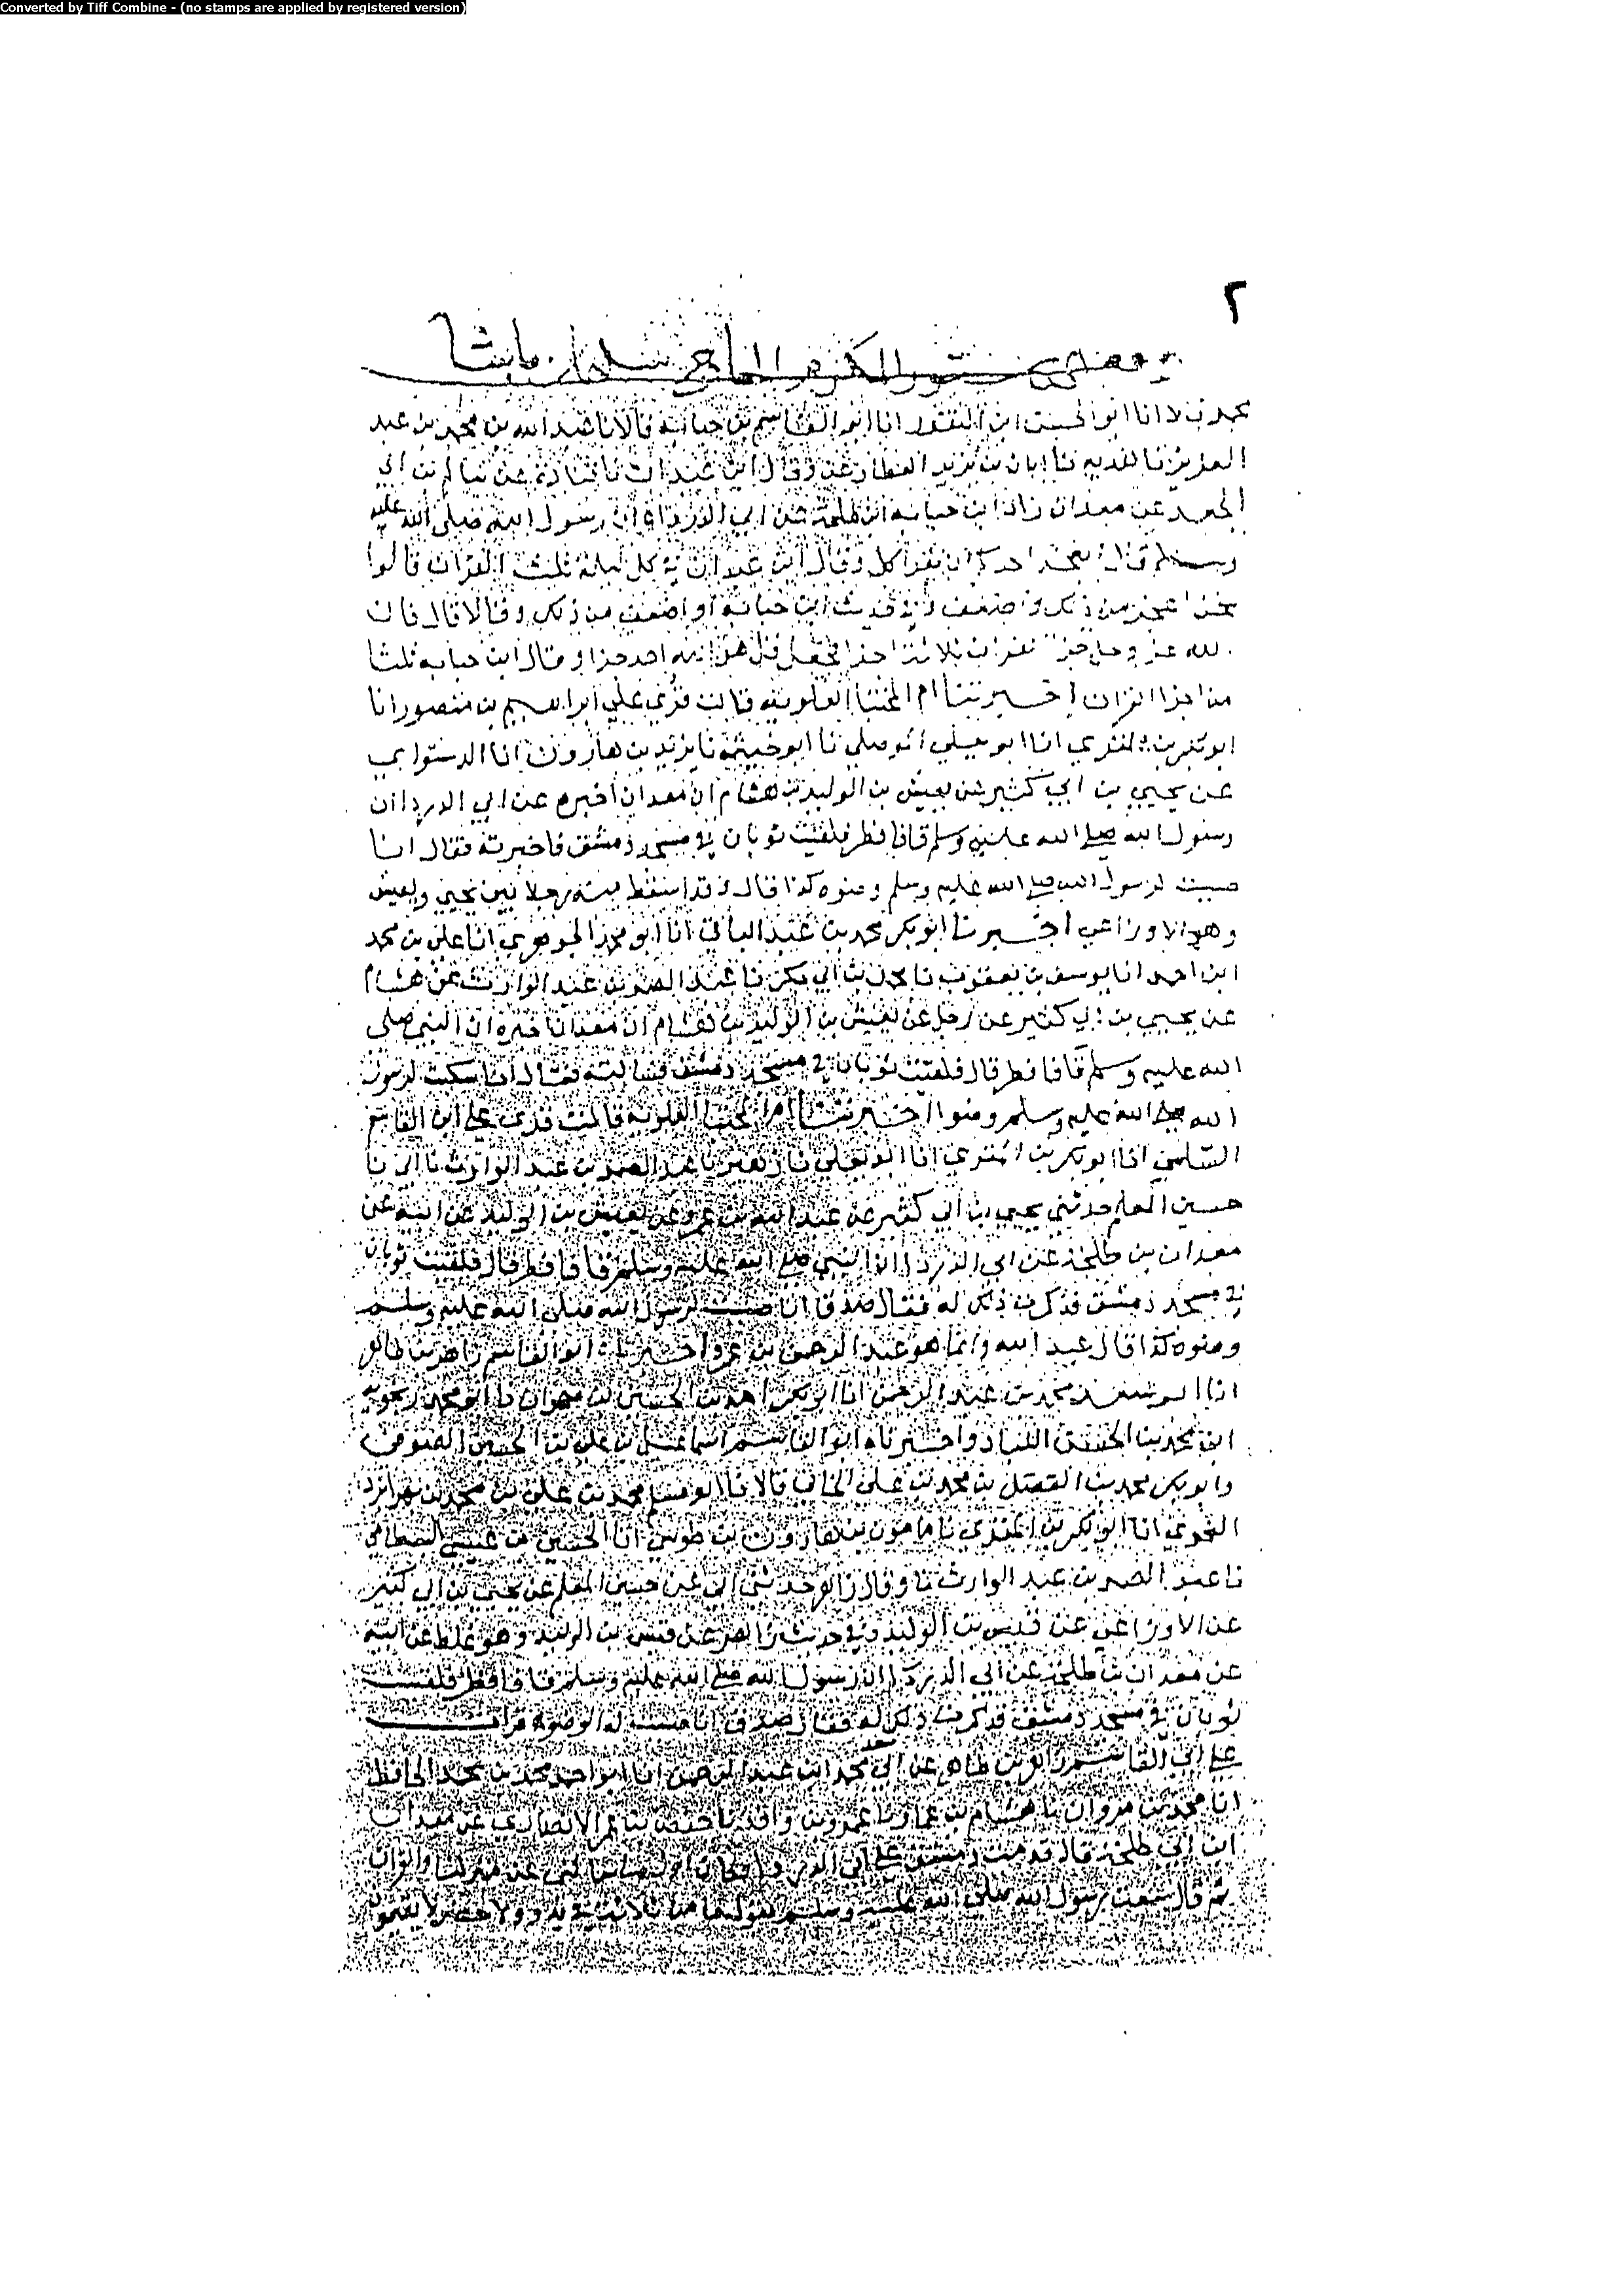 Converted by Tiff Combine - (no stamps are applied by registered version)
٢
الحاج سليمان باشا
انا ابو الحسين ابن النقور انا ابو القاسم بن حبابة قالا نا عبد الله بن محمد بن عبد
العزيز نا هدبه نا ابان بن يزيد العطار وقال ابن عبدان نا قتادة عن سالم بن ابي
الجعد عن معدان زاد ابن حبابه ابن طلحة عن ابي الدرداء ان رسول الله صلى الله عليه
وسلم قال ايعجز احدكم ان يقرا كل وقال ابن عبدان في كل ليلة ثلث القران قالوا
نحن اعجز من ذلك واضعف وفي حديث ابن حبابة او اضعف من ذلك وقالا قال فان
الله عز وجل جزا القران ثلاثة اجزا فجعل قل هو الله احد جزا وقال ابن حبابه ثلثا
من اجزا القران اخبرتنا ام المجتبا العلوية قالت قرئ علي ابراهيم بن منصور انا
ابو بكر بن المقري انا ابو يعلي الموصلي نا ابو خيثمة نا يزيد بن هارون انا الدستوايي
عن يحيي بن ابي كثير عن يعيش بن الوليد بن هشام ان معدان اخبره عن ابي الدردا ان
رسول الله صلى الله عليه وسلم قا فافطر فلقيت ثوبان في مسجد دمشق فاخبرته فقال انا
صببت لرسول الله صلى الله عليه وسلم وضوه كذا قال وقد اسقط منه رجلا بين يحيي ويعيش
وهو الاوزاعي اخبرنا ابو بكر محمد بن عبد الباقي انا ابو محمد الجوهري انا علي بن محمد
ابن احمد انا يوسف بن يعقوب نا محمد بن ابي بكر نا عبد الصمد بن عبد الوارث عن هشام
عن يحيي بن ابي كثير عن رجل عن يعيش بن الوليد بن هشام ان معدان اخبره ان النبي صلى
الله عليه وسلم قا فافطر قال فلقيت ثوبان في مسجد دمشق فسالته فقال انا سكبت لرسول
الله صلى الله عليه وسلم وضوا اخبرتنا ام المجتبا العلوية قالت قرئ علي ابي القاسم
السلمي انا ابو بكر بن المقري انا ابو يعلي نا زهير نا عبد الصمد بن عبد الوارث نا ابي نا
حسين المعلم حدثني يحيي بن ابي كثير عن عبد الله بن عمرو عن يعيش بن الوليد عن ابيه عن
معدان بن طلحة عن ابي الدردا ان النبي صلى الله عليه وسلم قا فافطر قال فلقيت ثوبان
في مسجد دمشق فذكرت ذلك له فقال صدق انا صببت لرسول الله صلى الله عليه وسلم
وضوه كذا قال عبد الله وانما هو عبد الرحمن بن عمرو اخبرناه ابو القاسم زاهر بن طاهر
انا ابو سعد محمد بن عبد الرحمن انا ابو بكر احمد بن الحسين بن مهران نا ابو محمد زنجويه
ابن محمد بن الحسن اللباد واخبرناه ابو القاسم اسماعيل بن علي بن الحسين الصوفي
وابو بكر محمد بن الفضل بن محمد بن علي الخاني قالا نا ابو مسلم محمد بن علي بن محمد بن مهرابزد
النحوي انا ابو بكر بن المقري نا مامون بن هارون بن طوسي انا الحسين بن عيسي البسطامي
نا عبد الصمد بن عبد الوارث نا وقال زاهر حدثني ابي عن حسين المعلم عن يحيي بن ابي كثير
عن الاوزاعي عن قيس بن الوليد وفي حديث زاهر عن قيس بن الوليد وهو غلط عن ابيه
عن معدان بن طلحة عن ابي الدردا ان رسول الله صلى الله عليه وسلم قا فافطر فلقيت
ثوبان في مسجد دمشق فذكرت ذلك له فقال صدق انا صببت له الوضوء قرات
علي ابي القاسم زاهر بن طاهر عن ابي سعد محمد ابن عبد الرحمن انا ابو احمد محمد بن محمد الحافظ
انا محمد بن مروان نا هشام بن عمار نا عمرو بن واقد نا حفص بن عمر الانصاري عن معدان
ابن ابي طلحة قال قدمت دمشق علي ابي الدردا فكان اول ما سالني عن منزلنا والقران
ثم قال سمعت رسول الله صلى الله عليه وسلم يقول ما من ثلاثة في بدو ولا حضر لا يقيمون